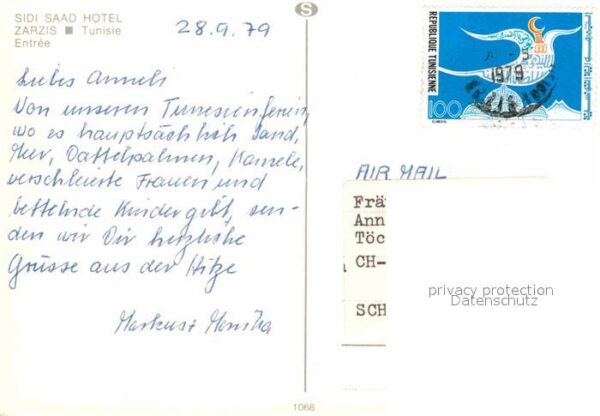 SIDI SAAD HOTEL
ZARZIS ■ Tunisie
Entrée
28.9.79
Liebes Anneli
Von unseren Tunesienferien,
wo es hauptsächlich Sand,
Meer, Dattelpalmen, Kamele,
verschleierte Frauen und
bettelnde Kinder gibt, sen-
den wir Dir herzliche
Grüsse aus der Hitze
Markus + Monika
1068
S
REPUBLIQUE TUNISIENNE
100
1979
AIR MAIL
Frä
Ann
Töc
CH-
SCH
privacy protection
Datenschutz